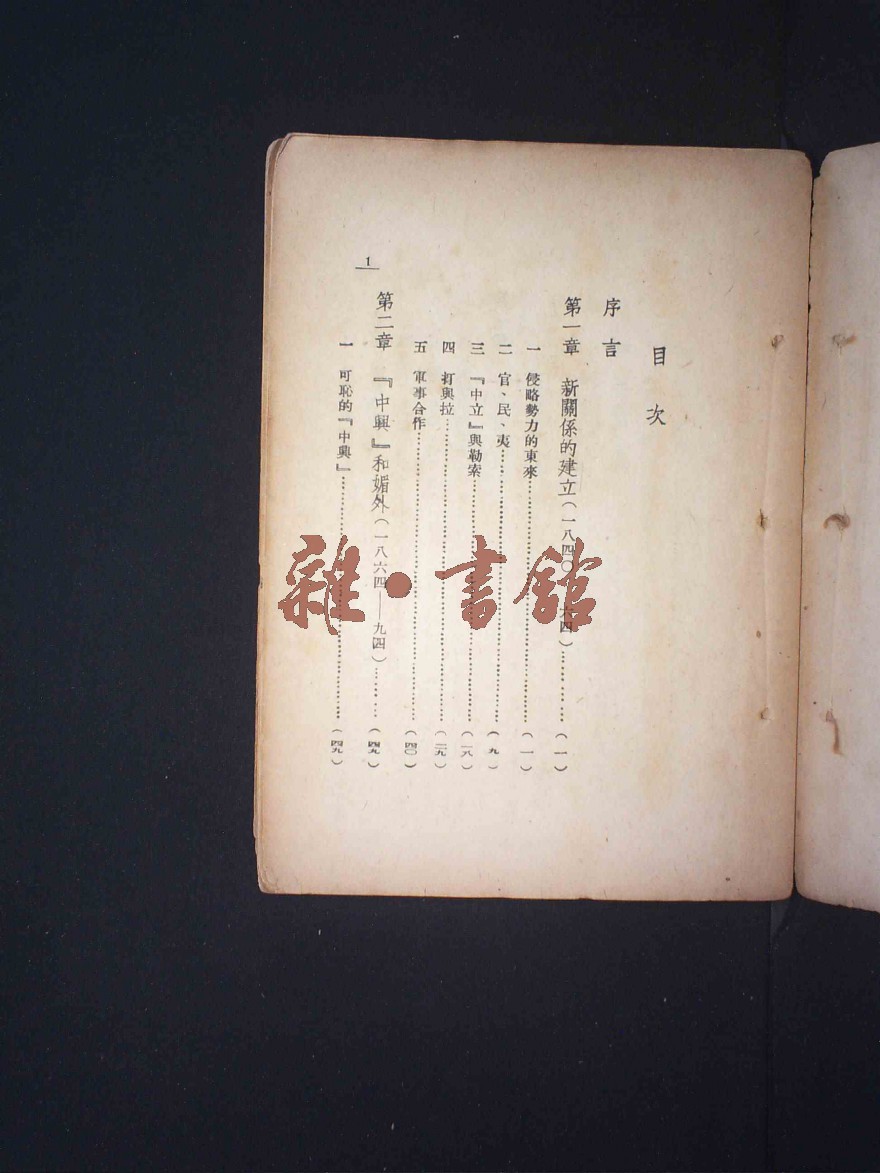 目次
序言
第一章 新關係的建立(一八四〇 六四)…………(一)
一 侵略勢力的東來…………(一)
二 官、民、夷…………(九)
三 『中立』與勒索…………(一八)
四 打與拉…………(二九)
五 軍事合作…………(四〇)
第二章 『中興』和媚外(一八六四——九四)…………(四九)
一 可恥的『中興』…………(四九)
1
雜·書館